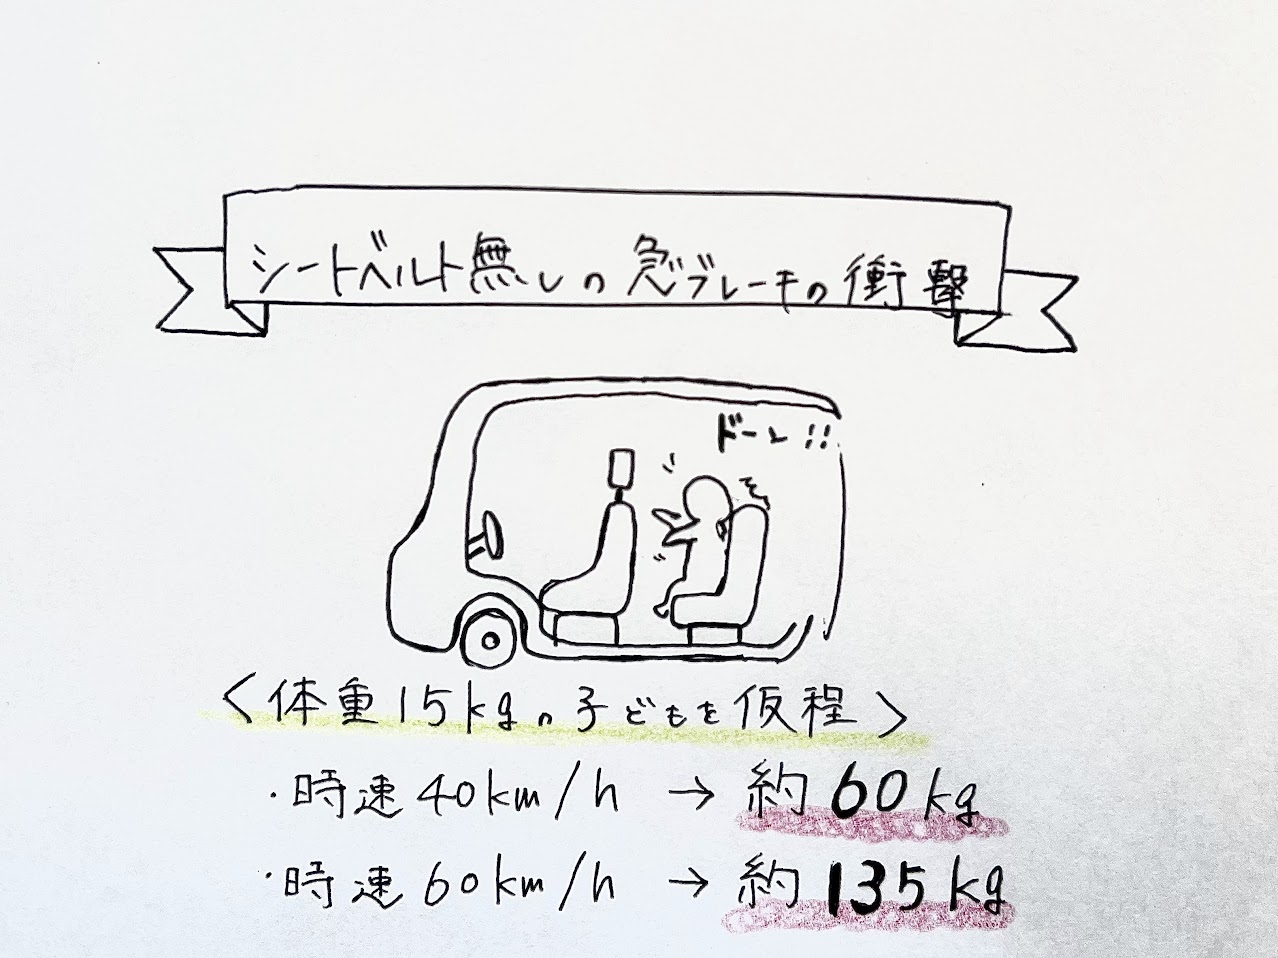 シートベルト無しの急ブレーキの衝撃
ドーン!!
<体重15kgの子どもを仮程>
・時速40km/h → 約60kg
・時速60km/h → 約135kg